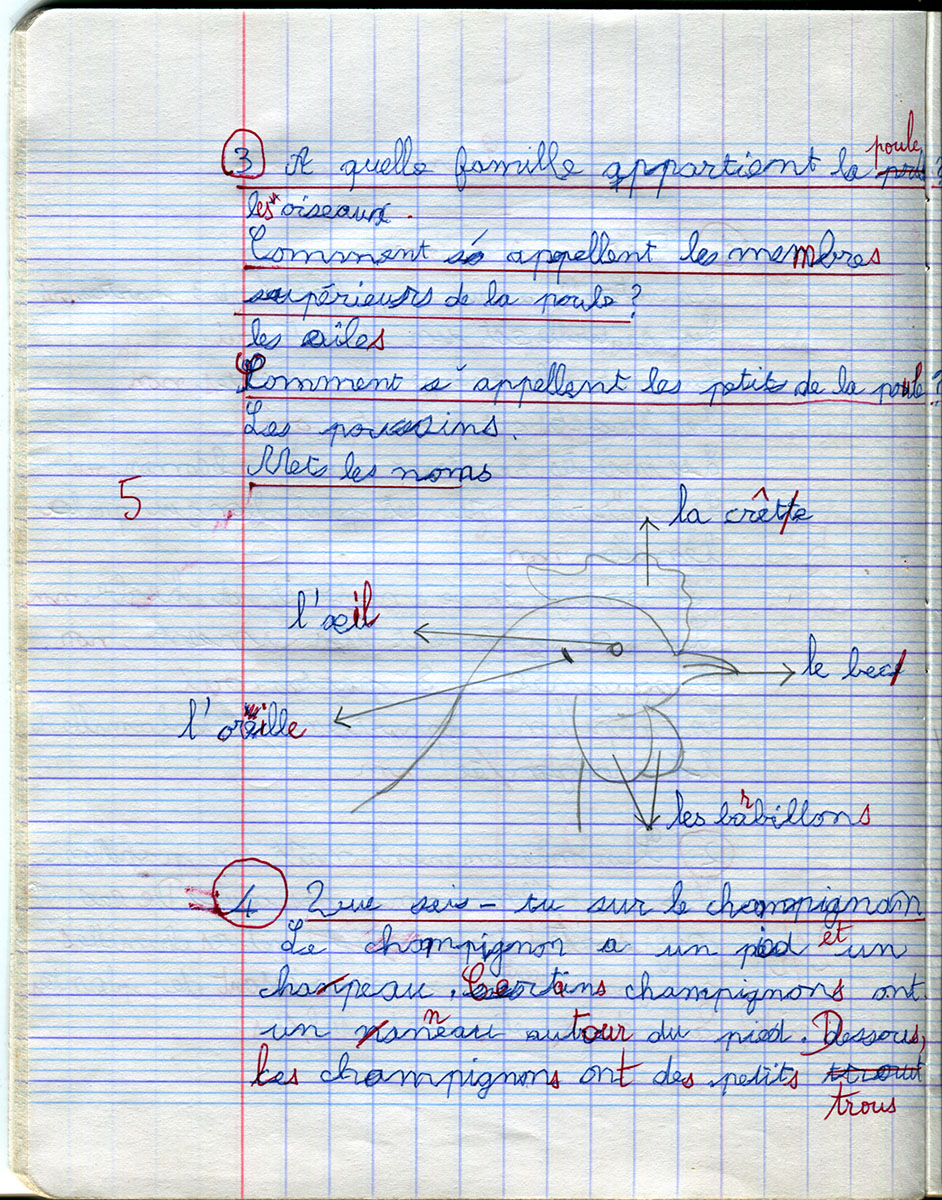 3 A quelle famille appartient la poule ?
les oiseaux.
Comment s'appellent les membres
supérieurs de la poule ?
les ailes
Comment s'appellent les petits de la poule ?
Les poussins.
Mets les noms
5
la crête
l'œil
le bec
l'oreille
les barbillons
4 Que sais-tu sur le champignon
Le champignon a un pied et un
chapeau. Certains champignons ont
un anneau autour du pied. Dessous,
les champignons ont des petits
trous